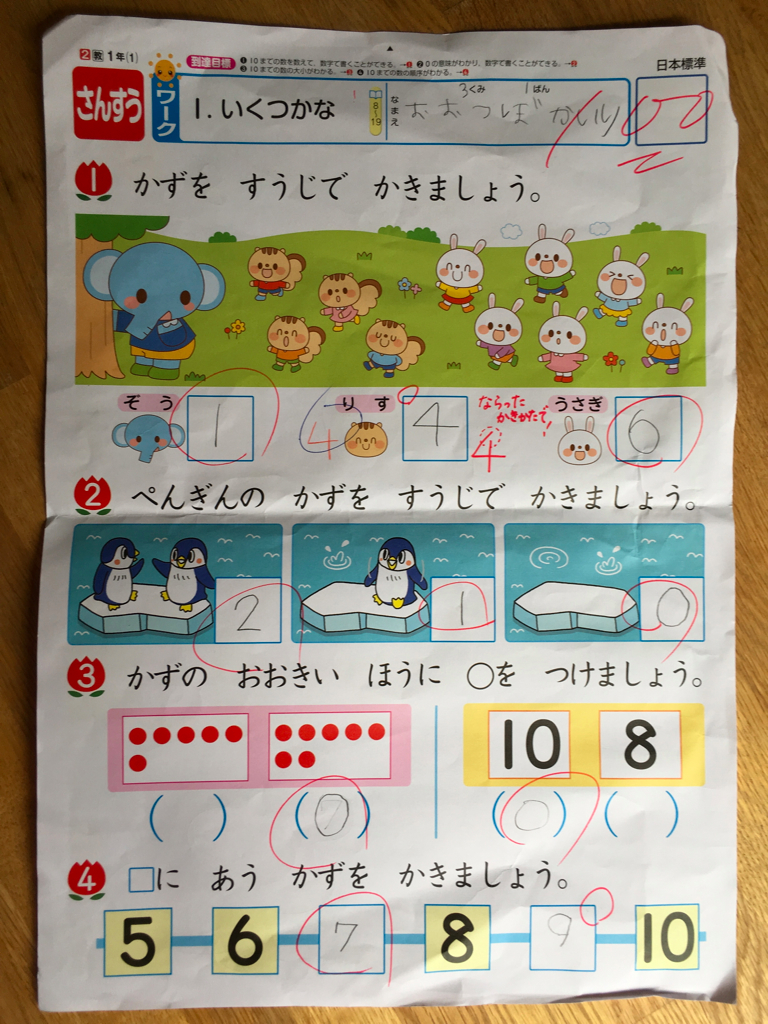 2教1年(1)
到達目標 ❶10までの数を数えて、数字で書くことができる。→1 ❷0の意味がわかり、数字で書くことができる。→2
❸10までの数の大小がわかる。→3 ❹10までの数の順序がわかる。→4
日本標準
さんすう ワーク 1.いくつかな 8〜19 なまえ 3くみ 1ばん
おおつぼ かいり 100
1 かずを すうじで かきましょう。
ぞう 1 4 りす 4 ならった かきかたで! 4 うさぎ 6
2 ぺんぎんの かずを すうじで かきましょう。
2 1 0
3 かずの おおきい ほうに ○を つけましょう。
10 8
( ) (○) (○) ( )
4 □に あう かずを かきましょう。
5 6 7 8 9 10